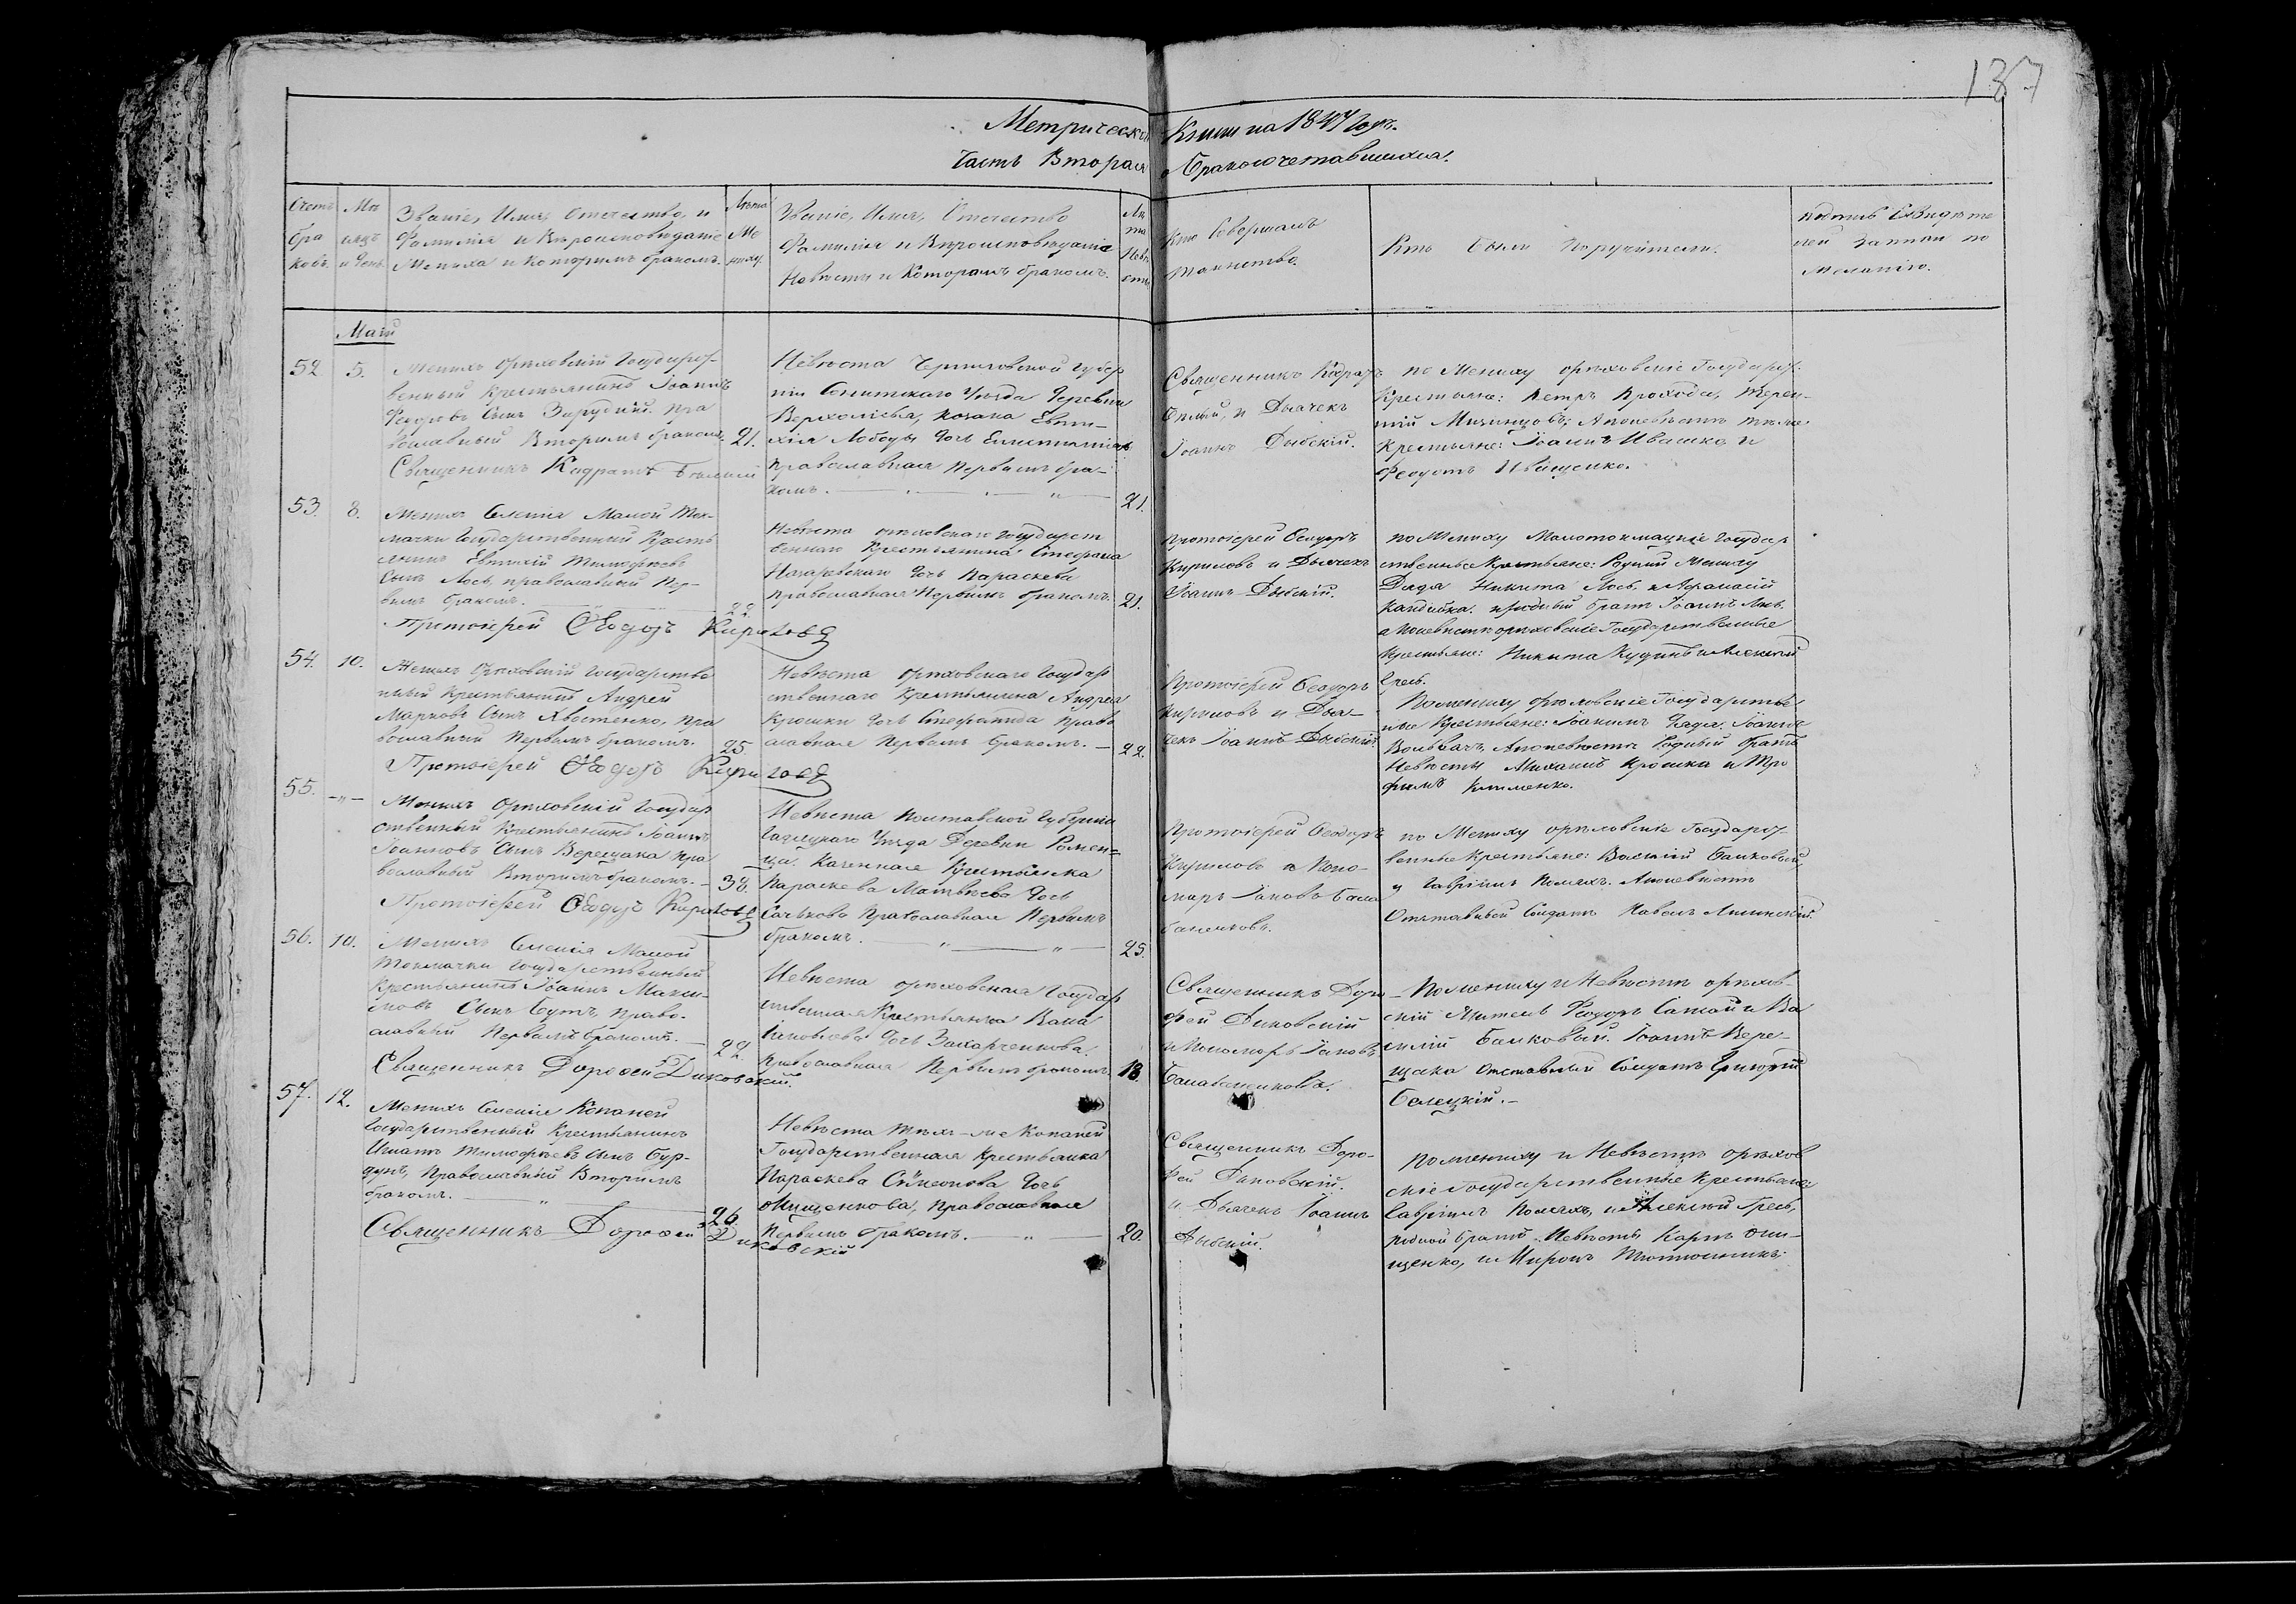 137
Метрической Книги на 1847 Годъ.
Часть Вторая о Бракосочетавшихся.
Счетъ браковъ.
Мѣсяцъ и День
Званіе, Имя, Отечество, и
Фамилія и Вѣроисповѣданіе
Жениха и Которымъ бракомъ.
Лѣта Жениху
Званіе, Имя, Отечество
Фамилія и Вѣроисповѣданіе
Невѣсты и Которымъ бракомъ.
Лѣта Невѣсты
Кто Совершалъ
Таинство.
Кто Были Поручители.
Май
52
5.
Женихъ Орѣховскій Государст-
венный Крестьянинъ Іоаннъ
Федоровъ Сынъ Зарудній. Пра
вославный Вторымъ бракомъ.
21.
Священникъ Кодратъ Бѣлый
Невѣста Черниговской Губер
ніи Уѣзда Деревни
козака Евти-
хія Лободы Дочь
православная Первымъ бра-
комъ.
21.
Священникъ Кодратъ
Бѣлый, и Дьячекъ
Іоаннъ Дыбскій.
по Жениху орѣховскіе Государст.
Крестьяне: Петръ Прохода, Терен-
тій а по невѣстѣ тѣ же
Крестьяне: Іоаннъ Ивашко и
Феодотъ
53.
8.
Женихъ Селенія Малой Ток-
мачки Государственный Кресть
янинъ Евтихій Тимофѣевъ
Сынъ Лось, православный Пер-
вымъ бракомъ.
22.
Протоіерей Ѳеодоръ Кириловъ
Невѣста орѣховскаго Государст
веннаго Крестьянина Стефана
Дочь Параскева
православная Первымъ бракомъ.
21.
Протоіерей Ѳеодоръ
Кириловъ и Дьячекъ
Іоаннъ Дыбскій.
по Жениху Малотокмацкіе Государ
ственные Крестьяне: Родный Жениху
Дядя Никита Лось, и Афанасій
Кандыбка. и родный братъ Іоаннъ Лось.
а По невѣстѣ орѣховскіе Государственные
Крестьяне: Никита и Алексей
Гресь.
54.
10.
Женихъ Орѣховскій Государстве
нный Крестьянинъ Андрей
Марковъ Сынъ Хвостенко, пра
вославный Первымъ бракомъ.
25
Протоіерей Ѳеодоръ Кириловъ
Невѣста Орѣховскаго Государ
ственнаго Крестьянина Андрея
Крошки Дочь Стефанида Право
славная Первымъ бракомъ.
22.
Протоіерей Ѳеодоръ
Кириловъ и Дья-
чекъ Іоаннъ Дыбскій.
По жениху Орѣховскіе Государстве
нные Крестьяне: Іоакимъ Іоаннъ
А по невѣстѣ Родный братъ
Невѣсты Михаилъ Крошка и Тро
фимъ Клименко.
55.
—„—
Женихъ Орѣховскій Государ
ственный Крестьянинъ Іоаннъ
Іоанновъ Сынъ Верещака пра
вославный Вторымъ бракомъ.
38.
Протоіерей Ѳеодоръ Кириловъ
Невѣста Полтавской Губерніи
Гадяцкаго Уѣзда Деревни
Казенная Крестьянка
Параскева Матвѣева Дочь
Православная Первымъ
бракомъ.
25.
Протоіерей Ѳеодоръ
Кириловъ и Поно-
марь Іаковъ Бала
баненковъ.
по Жениху орѣховскіе Государст-
венные Крестьяне: Василій Балковый,
и Гавріилъ Полякъ. А по невѣстѣ
Отставный Солдатъ Павелъ
56.
10.
Женихъ Селенія Малой
Токмачки Государственный
Крестьянинъ Іоаннъ Макси-
мовъ Сынъ Бутъ, право-
славный Первымъ бракомъ.
22.
Священникъ Дорофей Диковскій.
Невѣста орѣховская Государ
ственная Крестьянка
Іаковлева Дочь Захарченкова.
Православная Первымъ бракомъ.
18.
Священникъ Доро-
фей Диковскій
и Пономарь Іаковъ
Балабаненковъ.
По жениху и Невѣстѣ орѣхов-
скій Житель Ѳеодоръ и Ва
силій Балковый. Іоаннъ Вере-
щака Отставный Солдатъ Григорій
Белецкій.—
57.
12.
Женихъ Селенія Копаней
Государственный Крестьянинъ
Игнатъ Тимофѣевъ Сынъ Бур-
дунъ, Православный Вторымъ
бракомъ.
26.
Священникъ Дорофей Диковскій
Невѣста тѣхъ-же Копаней
Государственная Крестьянка
Параскева Симеонова Дочь
Онищенкова, православная
Первымъ бракомъ.
20.
Священникъ Доро-
фей Диковскій.
и Дьячекъ Іоаннъ
Дыбскій.
По жениху и Невѣстѣ орѣхов
скіе Государственные Крестьяне:
Гавріилъ Полякъ, и Алексей Гресь,
родной братъ Невѣсты Карпъ Они-
щенко, и Миронъ Тютюнникъ.